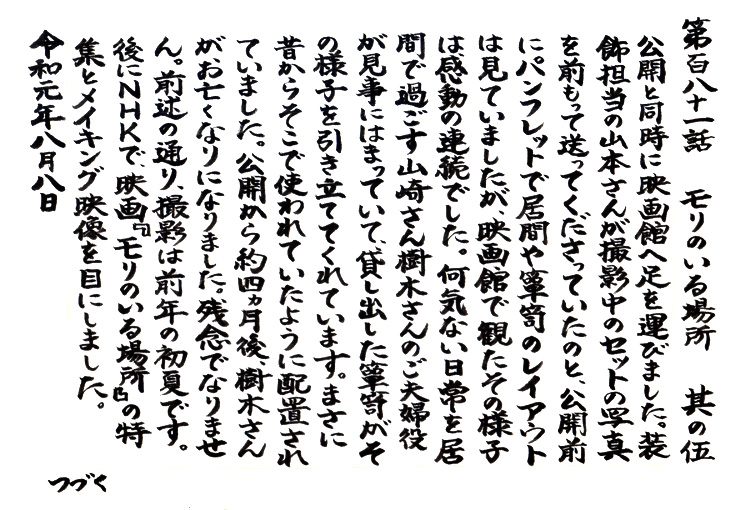 第百八十一話　モリのいる場所　其の伍
公開と同時に映画館へ足を運びました。装
飾担当の山本さんが撮影中のセットの写真
を前もって送ってくださっていたのと、公開前
にパンフレットで居間や箪笥のレイアウト
は見ていましたが、映画館で観たその様子
は感動の連続でした。何気ない日常を居
間で過ごす山崎さん樹木さんのご夫婦役
が見事にはまっていて、貸し出した箪笥がそ
の様子を引き立ててくれています。まさに
昔からそこで使われていたように配置され
ていました。公開から約四ヵ月後、樹木さん
がお亡くなりになりました。残念でなりませ
ん。前述の通り、撮影は前年の初夏です。
後にNHKで、映画『モリのいる場所』の特
集とメイキング映像を目にしました。
令和元年八月八日
つづく